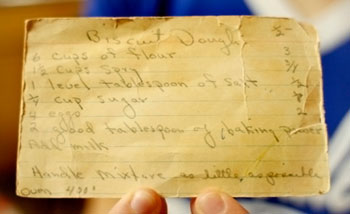 Biscuit Dough 5-
6 cups of flour 3
1½ cups Spry
1 level tablespoon of salt ½
¾ cup sugar
4 eggs 2
2 good tablespoon of baking power
Add milk
Handle mixture as little as possible
Oven 400°